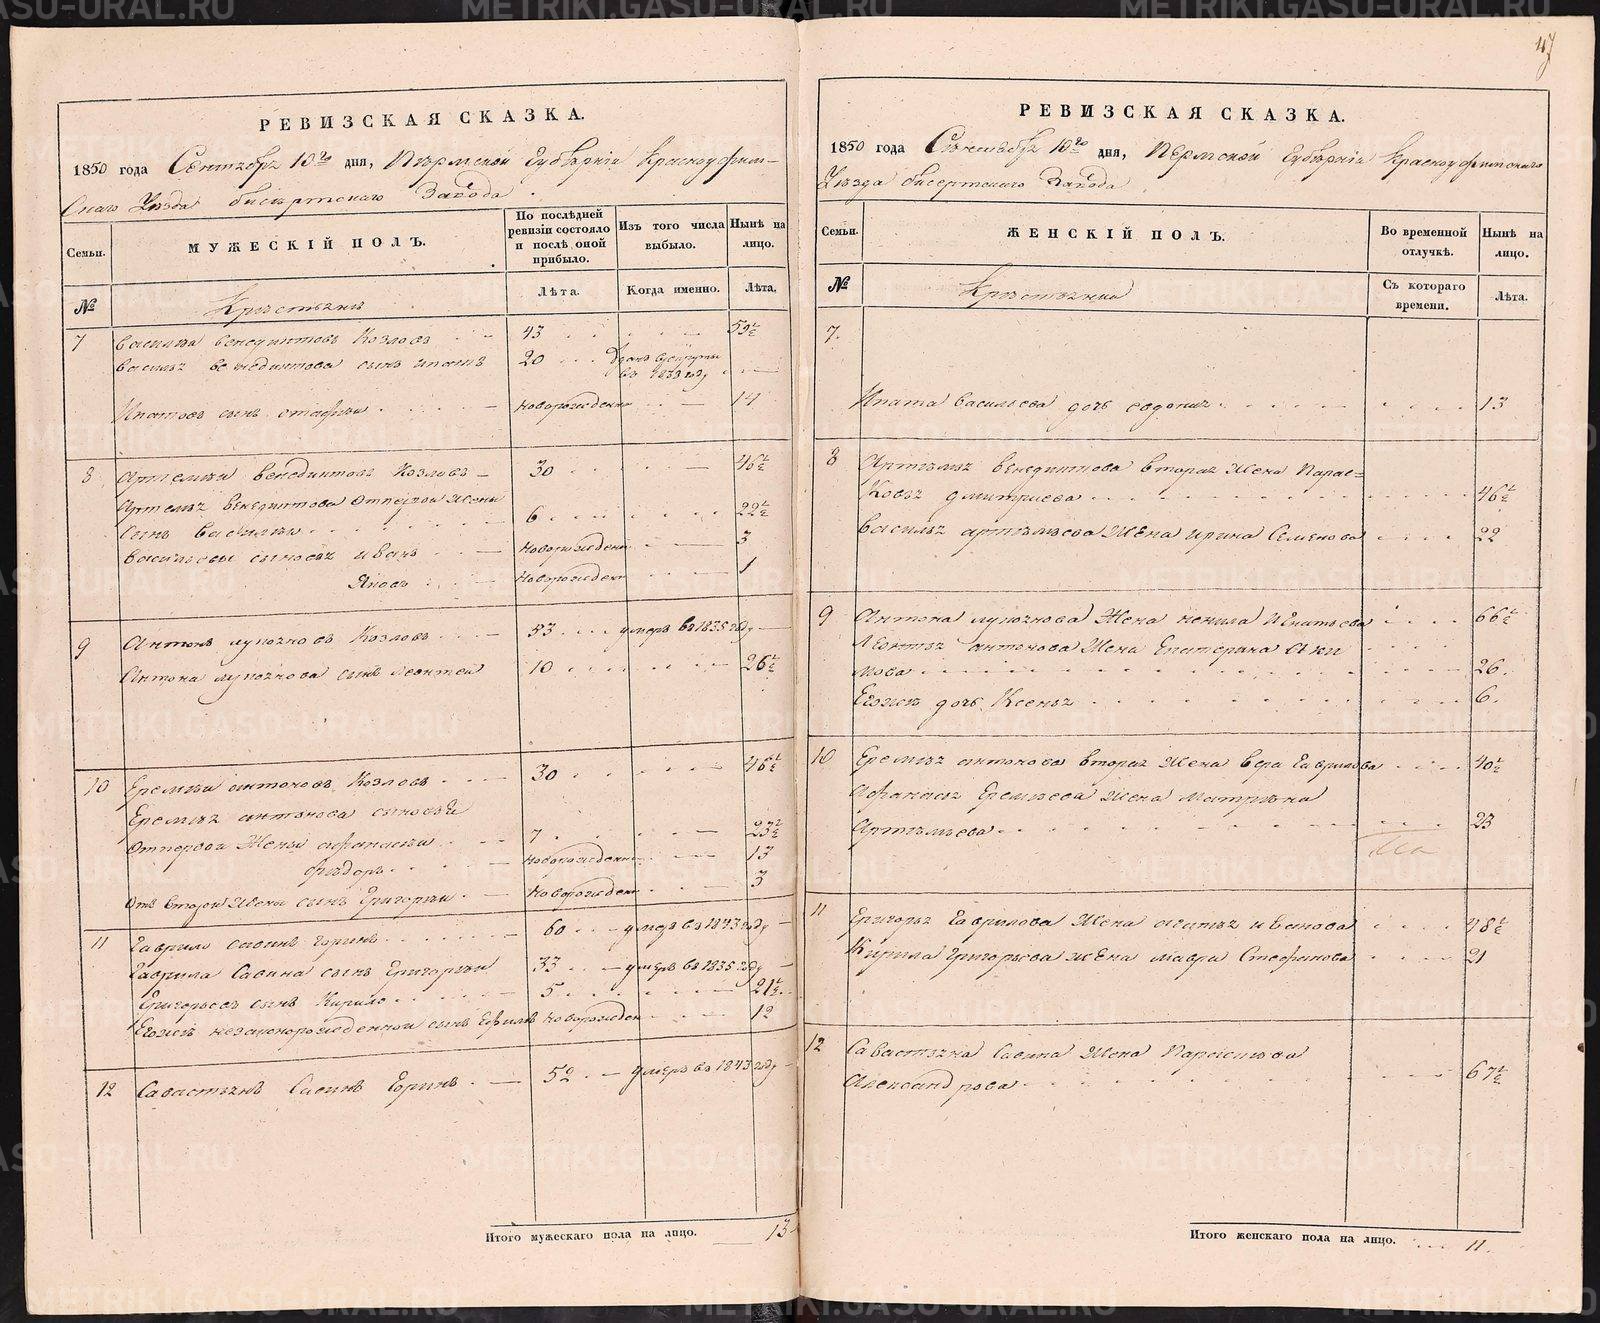 47
РЕВИЗСКАЯ СКАЗКА.
1850 года Сентября 10го дня, Пермской Губернiи Красноуфим-
скаго Уезда бисертскаго Завода
Семьи.
МУЖЕСКІЙ ПОЛЪ.
По послѣдней ревизіи состояло и послѣ оной прибыло.
Изъ того числа выбыло.
Нынѣ на лицо.
№
Крестьяне
Лѣта.
Когда именно.
Лѣта.
7 Василiй венедиктовъ Козловъ 43 59½
Василья венедиктова сынъ ипатъ 20 Зданъ врекруты
въ 1839 году
Ипатовъ сынъ Новорожденн 14
8 Артемiй венедиктовъ Козловъ 30 46½
Артемья Венедиктова Отпервой жены
сынъ василiй 6 22½
васильевы сыновья иванъ Новорожденн 3
Яковъ Новорожден 1
9 Антонъ лупочковъ Козловъ 53 умеръ въ 1835 году
Антона лупочкова сынъ леонтей 10 26½
10 Еремiй антоновъ Козловъ 30 46½
Еремья антонова сыновья
Отпервой Жены афанасiй 7 23½
фёдоръ Новорожденн 13
отъ второй Жены сынъ Григорiй Новорожден 3
11 Гаврило савинъ горинъ 60 умеръ въ 1843 году
Гаврила Савина сынъ Григорiй 33 умеръ въ 1835 году
Григорьевъ сынъ Кирило 5 21½
Егожъ незаконорожденной сынъ Ефимъ Новорожден 12
12 Савастьянъ Савинъ Горинъ 52 умеръ въ 1843 году
Итого мужескаго пола на лицо. 13
РЕВИЗСКАЯ СКАЗКА.
1850 года Сентября 10го дня, Пермской Губернiи Красноуфимскаго
Уезда бисертскаго Завода
Семьи.
ЖЕНСКІЙ ПОЛЪ.
Во временной отлучкѣ.
Нынѣ на лицо.
№
Крестьянки
Съ котораго времени.
Лѣта.
7.
Ипата васильева дочь евдокия 13
8 Артемья венедиктова вторая Жена Парас-
ковья дмитриева 46½
Василья артемьева Жена ирина Семенова 22
9 Антона лупочкова Жена ненила Игнатьева 66½
Леонтья антонова Жена Екатерина
26.
Егожъ дочь Ксенья 6.
10 Еремья антонова вторая Жена вера Гаврилова 40½
Афанасья Еремьева Жена Матрёна
Артемьева 23
11 Григорья Гаврилова Жена агатья иванова 48½
Кирила Григорьева Жена мавра Стефанова 21
12 Савастьяна Савина Жена Парасковья
Александрова 67½
Итого женскаго пола на лицо. 11.
METRIKI.GASO-URAL.RU